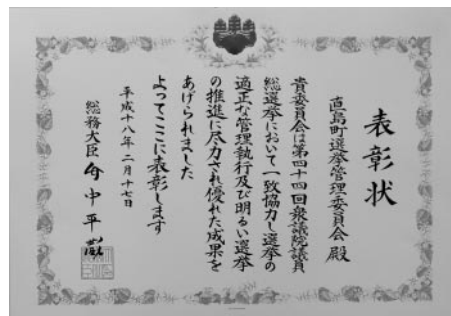 表彰状
直島町選挙管理委員会 殿
貴委員会は第四十四回衆議院議員
総選挙において一致協力し選挙の
適正な管理執行及び明るい選挙
の推進に尽力され優れた成果を
あげられました
よってここに表彰します
平成十八年二月十七日
総務大臣 竹中平蔵